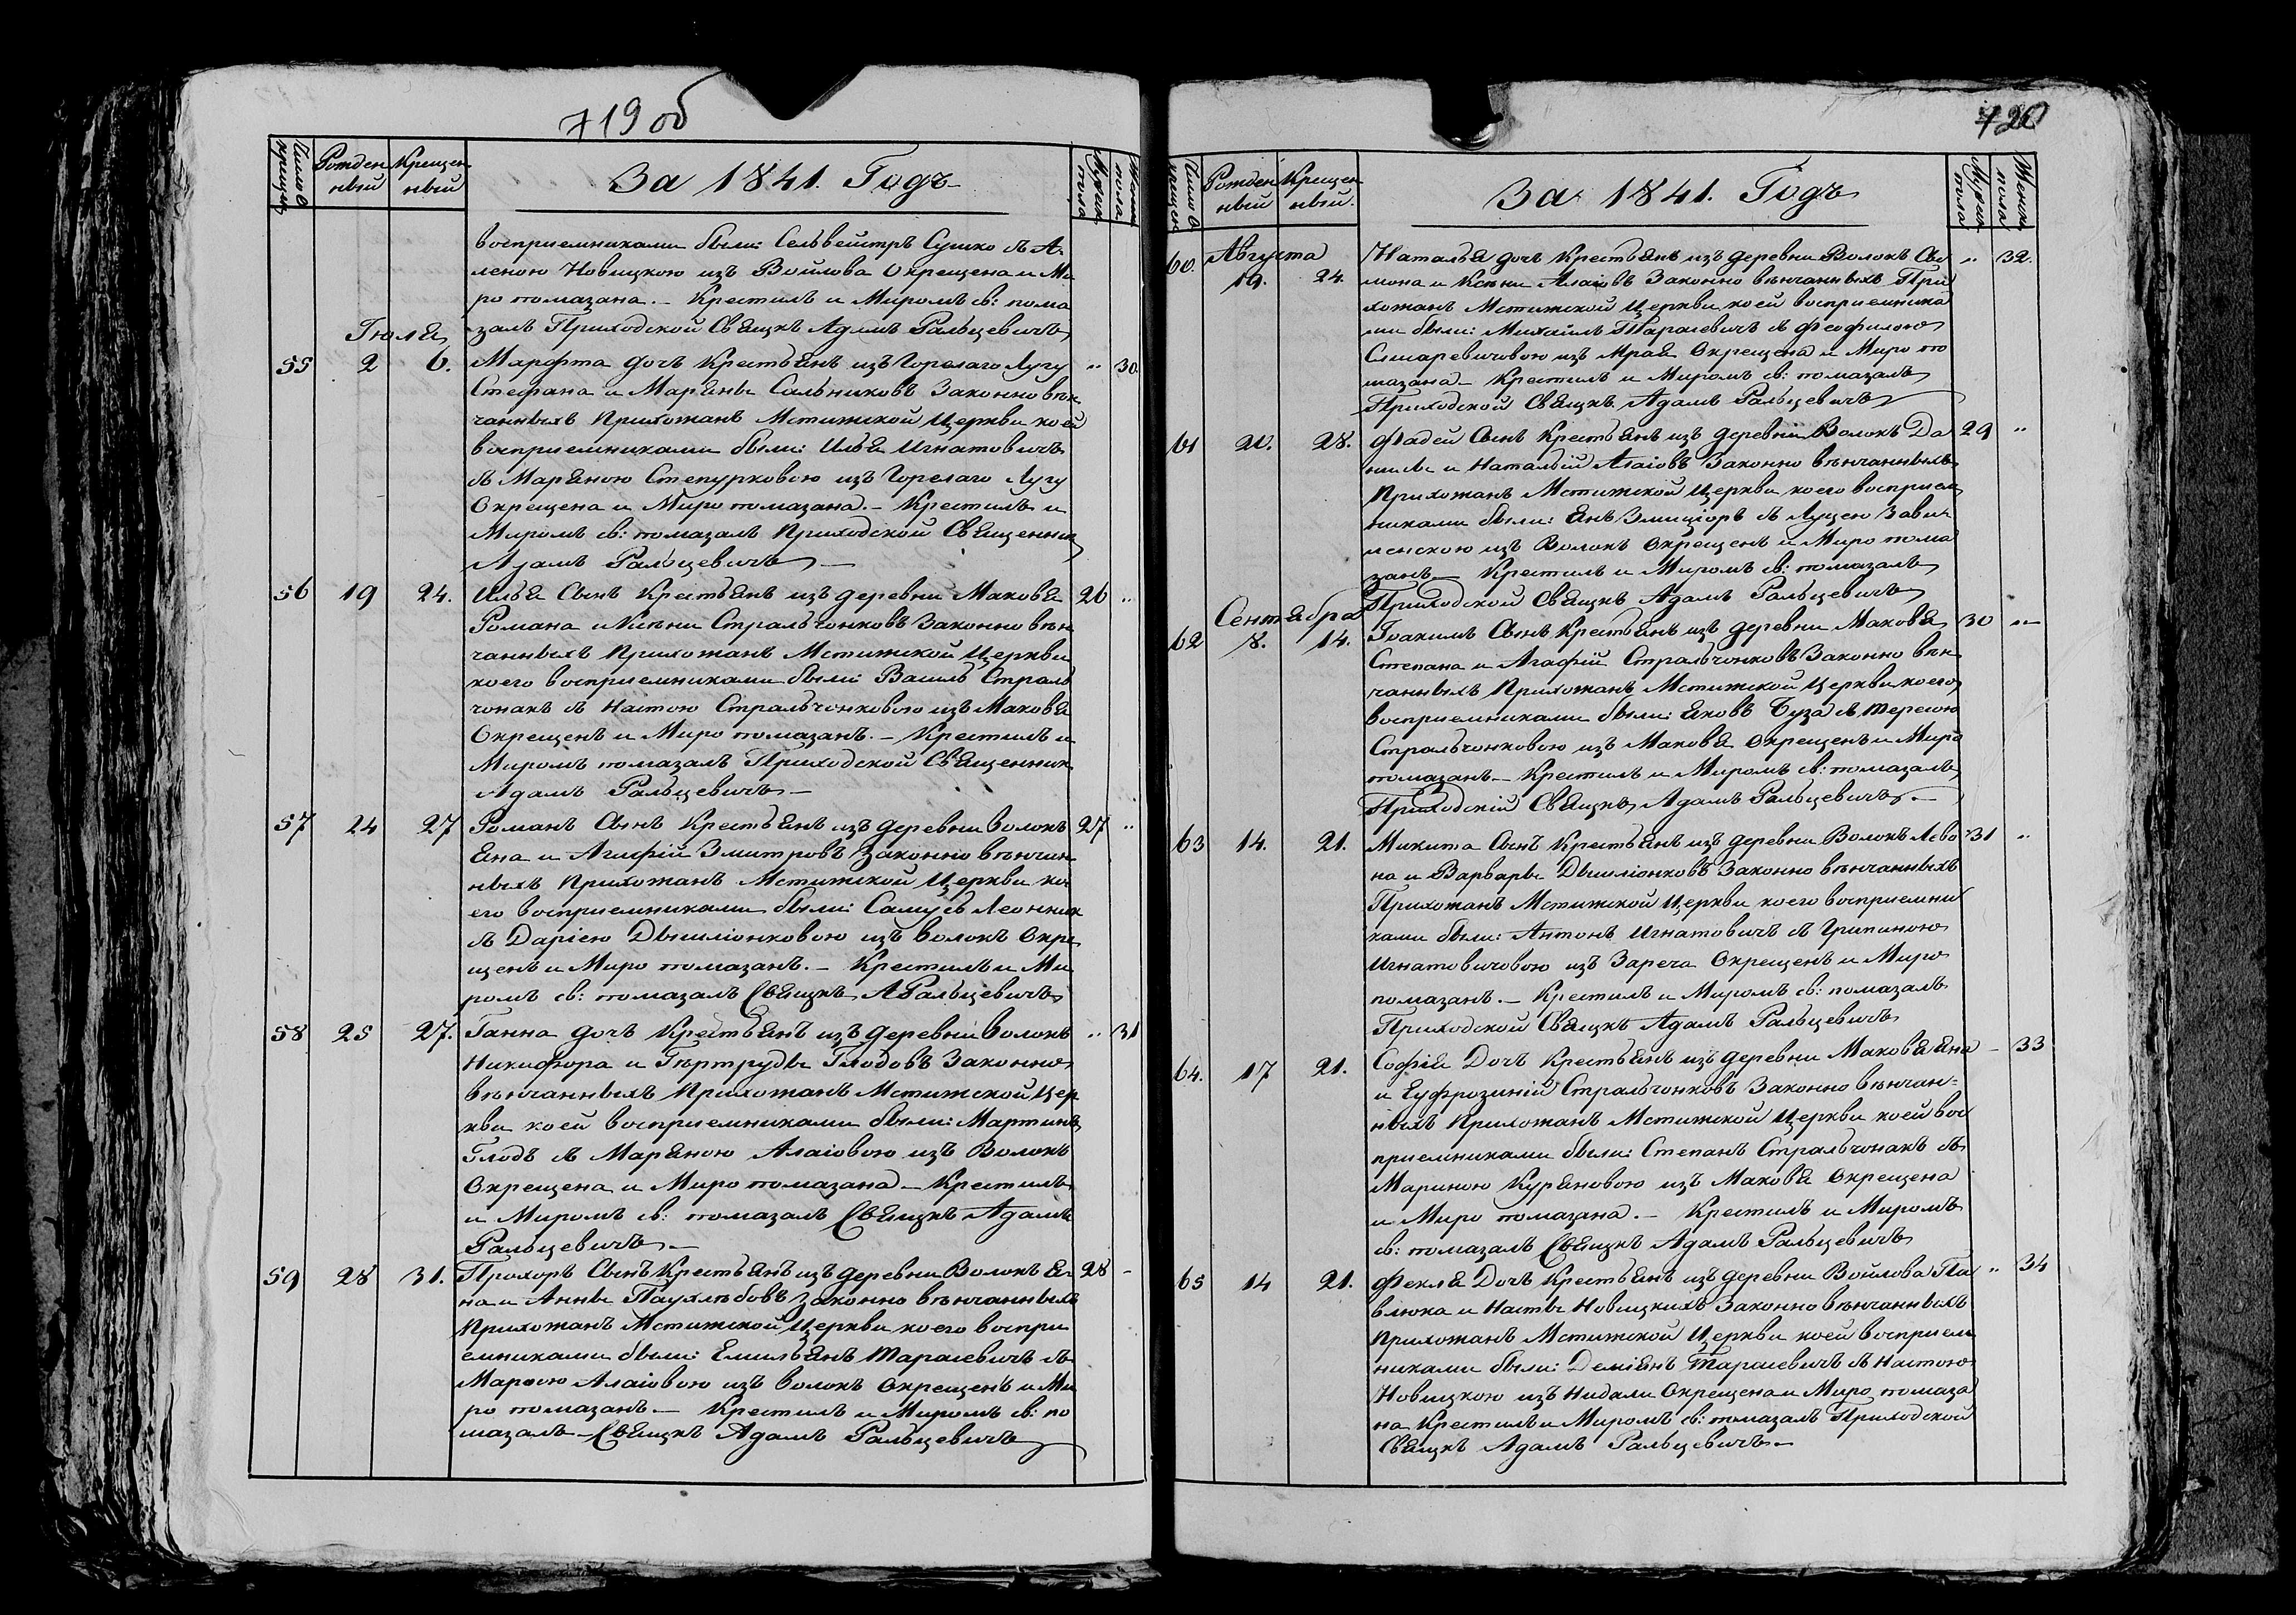 719 об
Число крещен.
Рожденный
Крещенный
За 1841. Годъ
Мужск. пола
Женск. пола
восприемниками были: Сельвейстръ Сушко съ А-
леною Новицкою изъ Войлова Окрещена и Ми
ро помазана. – Крестилъ и Миромъ св: пома
залъ Приходской Свящкъ Адамъ Ральцевичъ
Іюля
55 2 6. Марфта дочъ Крестьянъ изъ Горелаго Лугу " 30
Стефана и Марьяны Сальниковъ Законно вѣн
чанныхъ Прихожанъ Мстижской Церкви коей
восприемниками были: Илья Игнатовичъ
съ Марьяною Степурковою изъ Горелаго Лугу
Окрещена и Миро помазана. – Крестилъ и
Миромъ св: помазалъ Приходской Священник
Адамъ Ральцевичъ –
56 19 24. Илья Сынъ Крестьянъ изъ деревни Маковья 26 "
Романа и Ксѣни Стральчонковъ Законно вѣн
чанныхъ Прихожанъ Мстижской Церкви
коего восприемниками были: Василь Страль
чонакъ съ Настою Стральчонковою изъ Маковья
Окрещенъ и Миро помазанъ. – Крестилъ и
Миромъ помазалъ Приходской Священник
Адамъ Ральцевичъ –
57 24 27 Романъ Сынъ Крестьянъ изъ деревни Волокъ 27 "
Яна и Агафій Змитровъ Законно вѣнчан
ныхъ Прихожанъ Мстижской Церкви ко
его восприемниками были: Самусь Леонник
съ Даріею Дышліонковою изъ Волокъ Окре
щенъ и Миро помазанъ. – Крестилъ и Ми
ромъ св: помазалъ Свящкъ АРальцевичъ
58 25 27. Ганна дочъ Крестьянъ изъ деревни Волокъ " 31
Никифора и Гѣртруды Глодовъ Законно
вѣнчанныхъ Прихожанъ Мстижской Цер
кви коей восприемниками были: Мартинъ
Глодъ съ Марьяною Алаіовою изъ Волокъ
Окрещена и Миро помазана – Крестилъ
и Миромъ св: помазалъ Свящкъ Адамъ
Ральцевичъ. –
59 28 31. Прохоръ Сынъ Крестьянъ изъ деревни Волокъ Я- 28 –
на и Анны Паухлѣбовъ Законно вѣнчанныхъ
Прихожанъ Мстижской Церкви коего воспри
емниками были: Емильянъ Тарасевичъ съ
Марѳою Алаіовою изъ Волокъ Окрещенъ и Ми
ро помазанъ. – Крестилъ и Миромъ св: по
мазалъ – Свящкъ Адамъ Ральцевичъ
720
Число крещен.
Рожденный
Крещенный.
За 1841. Годъ
Мужск. пола
Женск. пола
Августа
60. 19. 24. Наталья дочъ Крестьянъ изъ деревни Волокъ Си " 32.
мона и Ксѣни Алаіовъ Законно вѣнчанныхъ При
хожанъ Мстижской Церкви коей восприемника
ми были: Михаилъ Тарасевичъ съ Феофилою
Слизаревичовою изъ Мрая Окрещена и Миро по
мазана – Крестилъ и Миромъ св: помазалъ
Приходской Свящкъ Адамъ Ральцевичъ
61 21. 28. Фадей Сынъ Крестьянъ изъ деревни Волокъ Да 29 "
нилы и Наталій Алаіовъ Законно вѣнчанныхъ
Прихожанъ Мстижской Церкви коего восприем
никами были: Янъ Змиціоръ съ Луцею Зави-
ленскою изъ Волокъ Окрещенъ и Миро пома
занъ – Крестилъ и Миромъ св: помазалъ
Приходской Свящкъ Адамъ Ральцевичъ
Сентября
62 8. 14. Іоакимъ Сынъ Крестьянъ изъ деревни Маковья 30 "
Степана и Агафій Стральчонковъ Законно вѣн
чанныхъ Прихожанъ Мстижской Церкви коего
восприемниками были: Яковъ Буза съ Тересою
Стральчонковою изъ Маковья Окрещенъ и Миро
помазанъ – Крестилъ и Миромъ св: помазалъ
Приходскій Свящкъ Адамъ Ральцевичъ. –
63 14. 21. Микита Сынъ Крестьянъ изъ деревни Волокъ Лево 31 "
на и Варвары Дышліонковъ Законно вѣнчанныхъ
Прихожанъ Мстижской Церкви коего восприемни
ками были: Антонъ Игнатовичъ съ Грипиною
Игнатовичовою изъ Зареча Окрещенъ и Миро
помазанъ. – Крестилъ и Миромъ св: помазалъ
Приходской Свящкъ Адамъ Ральцевичъ
64. 17 21. Софія Дочъ Крестьянъ изъ деревни Маковья Яна – 33
и Еуфрозиній Стральчонковъ Законно вѣнчан=
ныхъ Прихожанъ Мстижской Церкви коей вос
приемниками были: Степанъ Стральчонакъ съ
Мариною Курьяновою изъ Маковья Окрещена
и Миро помазана. – Крестилъ и Миромъ
св: помазалъ Свящкъ Адамъ Ральцевичъ
65 14 21. Фекля Дочъ Крестьянъ изъ деревни Войлова Па " 34
влюка и Насты Новицкихъ Законно вѣнчанныхъ
Прихожанъ Мстижской Церкви коей восприем
никами были: Деміянъ Тарасевичъ съ Настою
Новицкою изъ Нидали Окрещена и Миро помаза
на Крестилъ и Миромъ св: помазалъ Приходской
Свящкъ Адамъ Ральцевичъ –